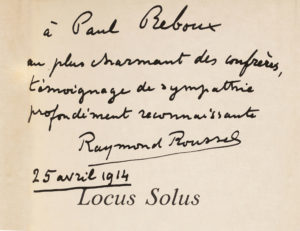 à Paul Reboux
au plus charmant des confrères,
témoignage de sympathie
profondément reconnaissante
Raymond Roussel
25 avril 1914
Locus Solus